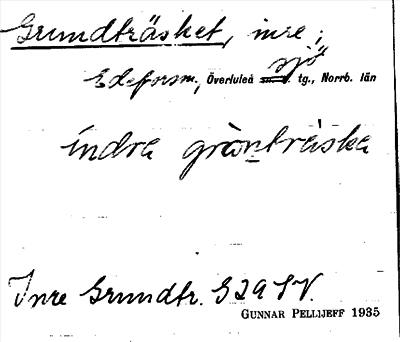 Grundträsket, inre;
sjö
Edeforsm., Överluleå tg., Norrb. län
indra grànträska
Inre Grundtr. S29SV.
GUNNAR PELLIJEFF 1935